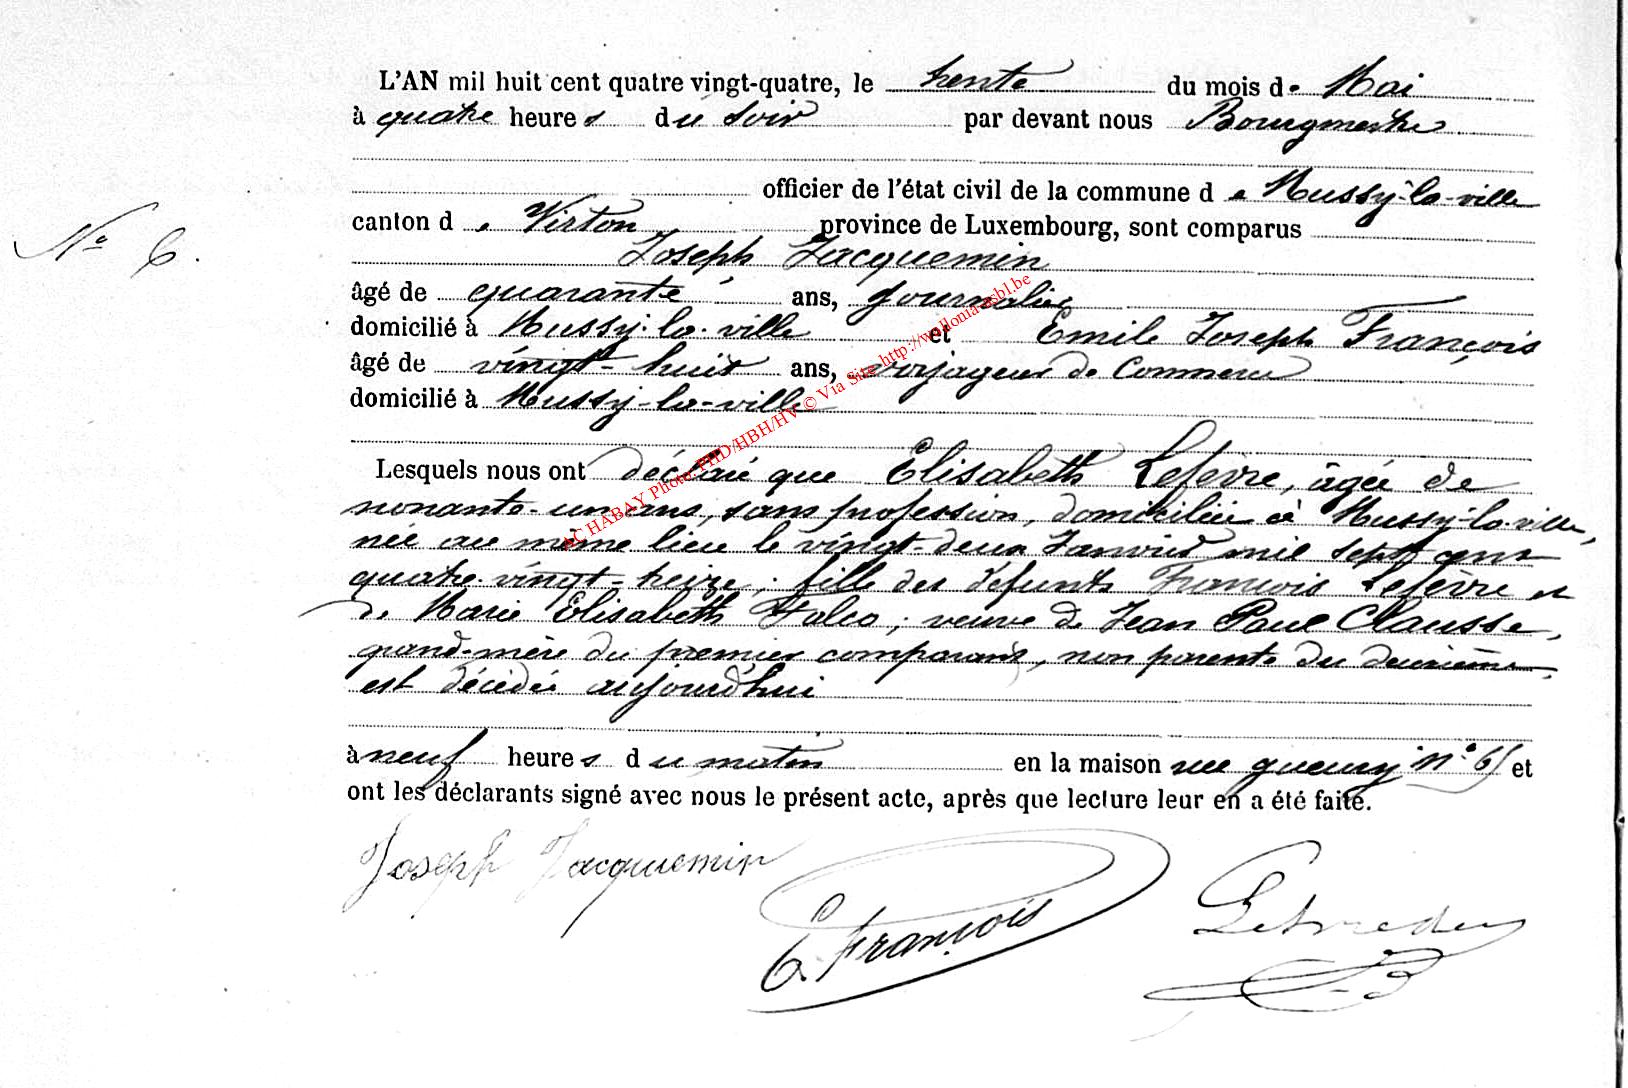 L'AN mil huit cent quatre vingt-quatre, le trente du mois de Mai
à quatre heures du soir par devant nous Bourgmestre
officier de l'état civil de la commune de Mussy-la-ville
N° 6.
canton de Virton province de Luxembourg, sont comparus
Joseph Jacquemin
âgé de quarante ans, journalier
domicilié à Mussy-la-ville et Emile Joseph François
âgé de vingt-huit ans, voyageur de Commerce
domicilié à Mussy-la-ville
AC HABAY Photo: PHD/HBH/HV © Via Site http://wallonia-asbl.be
Lesquels nous ont déclaré que Elisabeth Lefèvre, âgée de
nonante-un ans, sans profession, domiciliée à Mussy-la-ville,
née au même lieu le vingt-deux Janvier mil sept cent
quatre-vingt-treize, fille des défunts François Lefèvre et
de Marie Elisabeth ; veuve de Jean Paul Clausse,
grand-mère du premier comparant, non parente du deuxième,
est décédée aujourd'hui
à neuf heures du matin en la maison rue n° 6 et
ont les déclarants signé avec nous le présent acte, après que lecture leur en a été faite.
Joseph Jacquemin
E. François